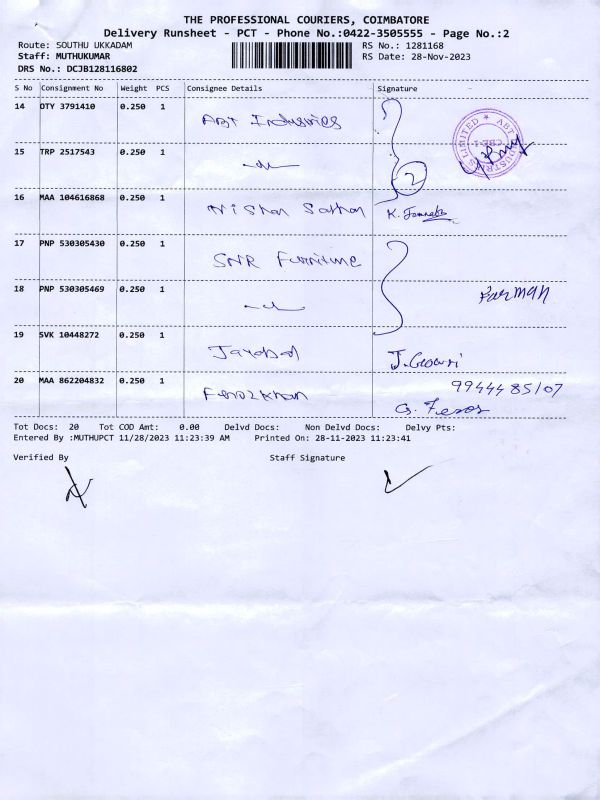 THE PROFESSIONAL COURIERS, COIMBATORE
Delivery Runsheet - PCT - Phone No.:0422-3505555 - Page No.:2
Route: SOUTHU UKKADAM RS No.: 1281168
Staff: MUTHUKUMAR RS Date: 28-Nov-2023
DRS No.: DCJB128116802
S No Consignment No Weight PCS Consignee Details Signature
14 DTY 3791410 0.250 1 ABT Industries
ABT INDUSTRIES LIMITED
15 TRP 2517543 0.250 1
2
16 MAA 104616868 0.250 1
17 PNP 530305430 0.250 1 SNR Furniture
18 PNP 530305469 0.250 1 Farman
19 SVK 10448272 0.250 1 J. Gowri
20 MAA 862204832 0.250 1 Feroz Khan 9944485107
G. Feros
Tot Docs: 20 Tot COD Amt: 0.00 Delvd Docs: Non Delvd Docs: Delvy Pts:
Entered By :MUTHUPCT 11/28/2023 11:23:39 AM Printed On: 28-11-2023 11:23:41
Verified By Staff Signature